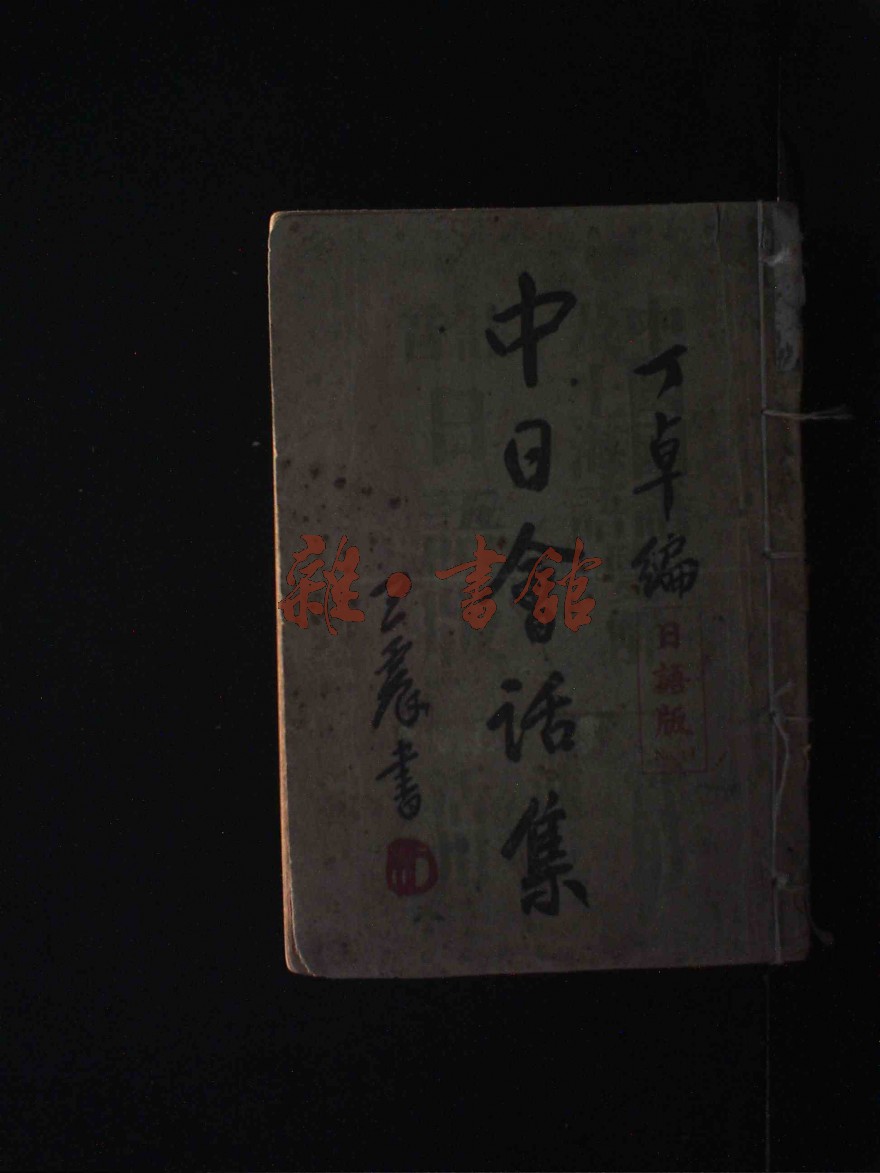 丁卓編
日語版
中日會话集
書
雜·書館